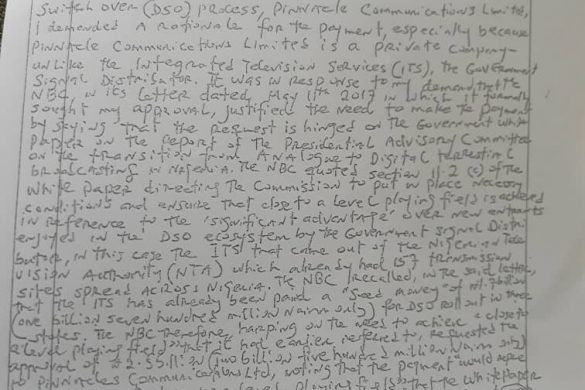 Switch over (DSO) process, Pinnacle Communications Limited,
I demanded a rationale for the payment, especially because
Pinnacle Communications Limited is a private company
unlike the Integrated Television Services (ITS), the Government
Signal Distributor. It was in response to my demand, that the
NBC in its letter dated May 11th 2017 in which it formally
sought my approval, justified the need to make the payment
by saying that the request is hinged on the Government White
Paper on the Report of the Presidential Advisory Committee
on the transition from Analogue to Digital terrestrial
broadcasting in Nigeria. The NBC quoted section 11.2 (c) of the
White paper directing the Commission to put in place necessary
conditions and ensure that close to a level playing field is achieved
in reference to the 'significant advantage' over new entrants
enjoyed in the DSO ecosystem by the Government signal Distri
butor, in this case the ITS that came out of the Nigerian Tele
vision Authority (NTA) which already had 157 transmission
sites spread across Nigeria. The NBC recalled, in the said letter,
that the ITS has already been paid a "seed money" of N1.7billion
(one billion seven hundred million Naira only) for DSO roll out in three
states. The NBC therefore, harping on the need to achieve "close to
a level playing field" that it had earlier referred to, requested the
approval of (Two billion five hundred million Naira only)
to Pinnacle Communications Ltd, noting that the payment "would
level playing field the White paper